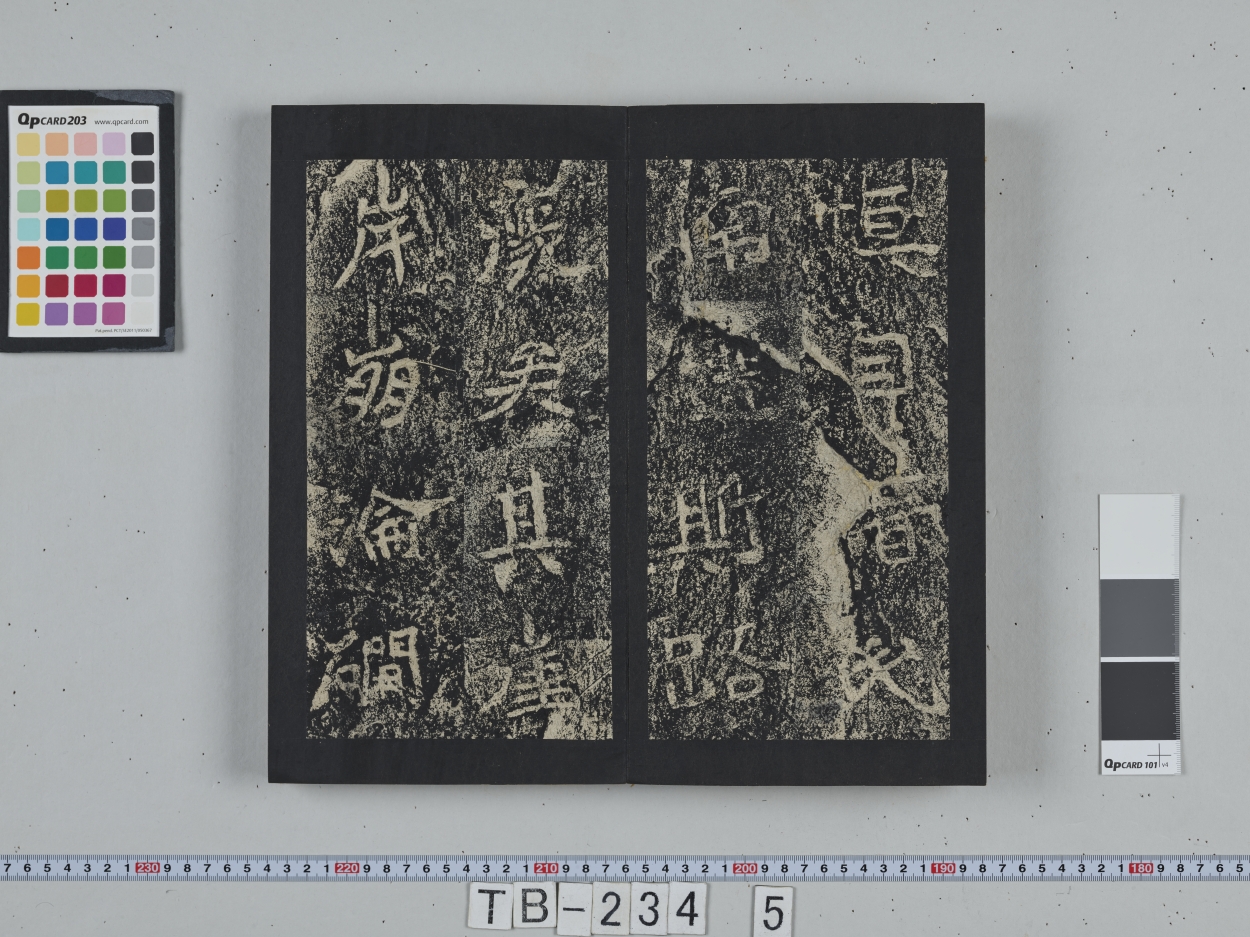 恒自晉氏
南遷斯路
廢矣其崖
岸崩淪磵
QpCARD 203 www.qpcard.com
QpCARD 101 v4
7 6 5 4 3 2 1 230 9 8 7 6 5 4 3 2 1 220 9 8 7 6 5 4 3 2 1 210 9 8 7 6 5 4 3 2 1 200 9 8 7 6 5 4 3 2 1 190 9 8 7 6 5 4 3 2 1 180 9 8 7 6 5
TB-234 5